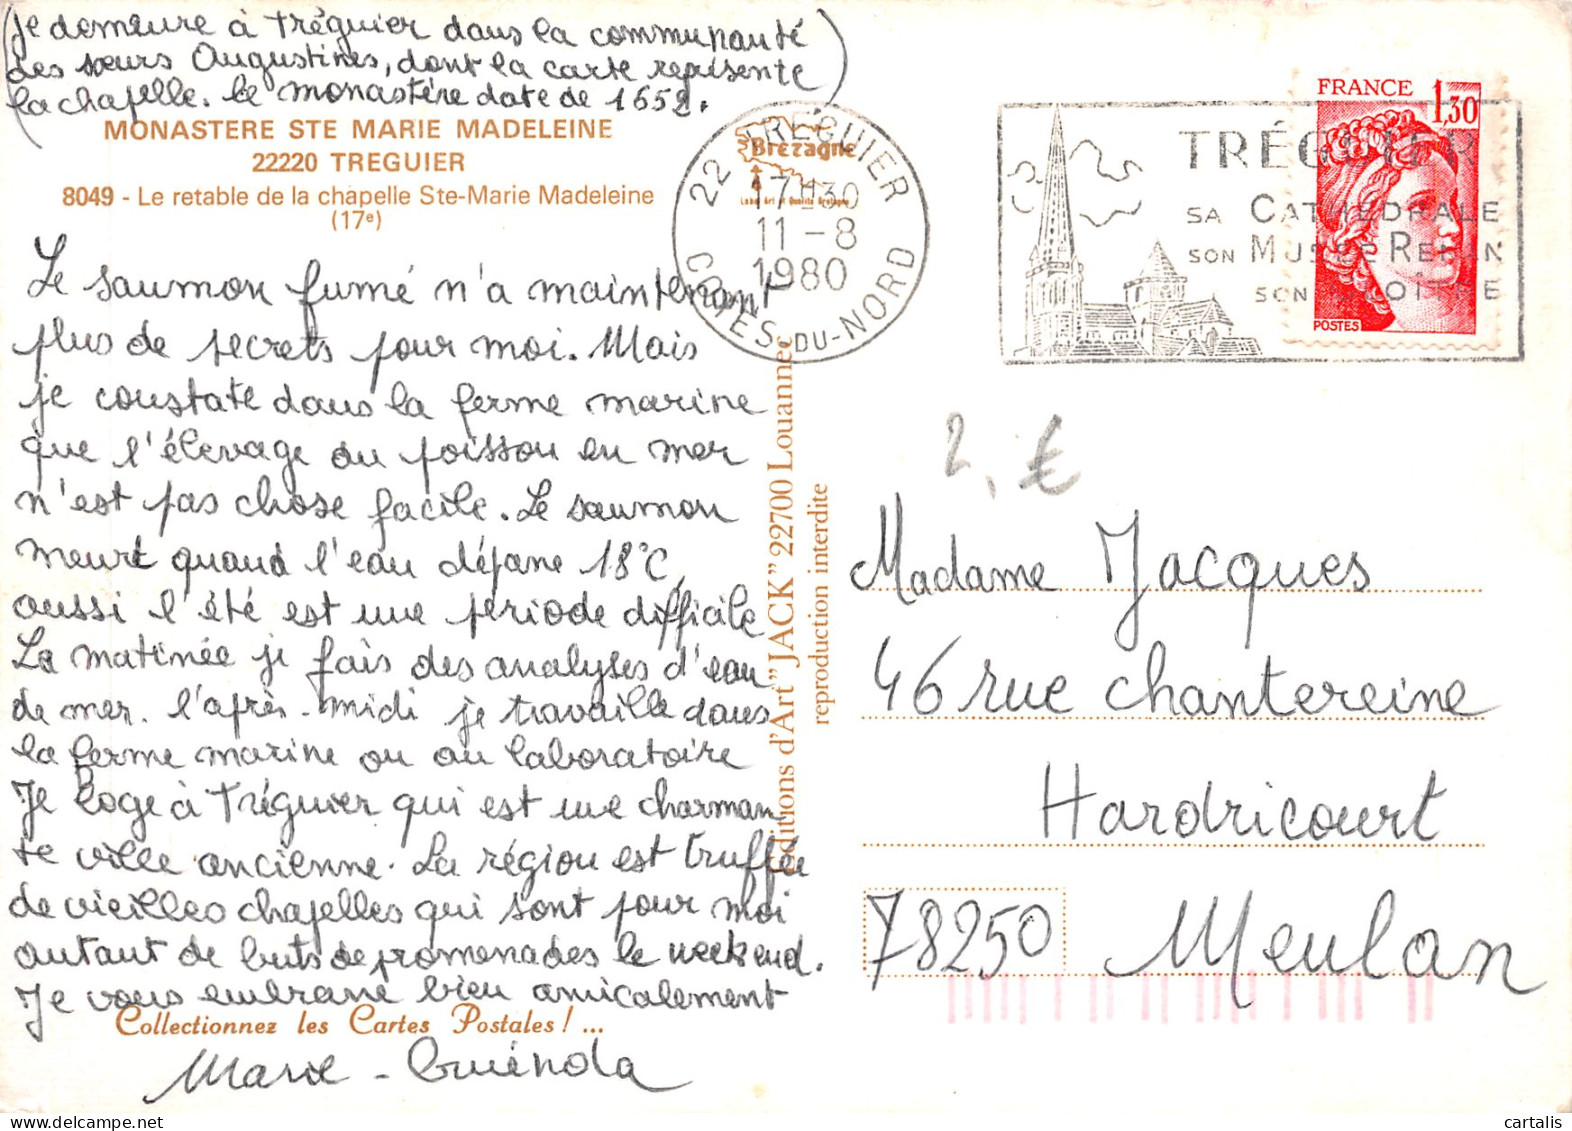 (je demeure à Tréguier dans la communauté
des sœurs Augustines, dont la carte représente
la chapelle. Le monastère date de 1652.)
MONASTERE STE MARIE MADELEINE
22220 TREGUIER
8049 - Le retable de la chapelle Ste-Marie Madeleine
(17e)
Le saumon fumé n'a maintenant
plus de secrets pour moi. Mais
je constate dans la ferme marine
que l'élevage du poisson en mer
n'est pas chose facile. Le saumon
meurt quand l'eau dépasse 18°C,
aussi l'été est une période difficile
La matinée je fais des analyses d'eau
de mer. l'après-midi je travaille dans
la ferme marine ou au laboratoire
Je loge à Tréguier qui est une charman
te ville ancienne. La région est truffée
de vieilles chapelles qui sont pour moi
autant de buts de promenades le weekend.
Je vous embrasse bien amicalement
Collectionnez les Cartes Postales ! ...
Marie-Guénola
Editions d'Art "JACK" 22700 Louannec
reproduction interdite
Bretagne
22 TREGUIER
17H30
11-8
1980
COTES-DU-NORD
TRÉGUIER
SA CATHÉDRALE
SON MUSÉE RENAN
SON CLOÎTRE
FRANCE 1,30
POSTES
2, €
Madame Jacques
46 rue Chantereine
Hardricourt
78250 Meulan
cartalis